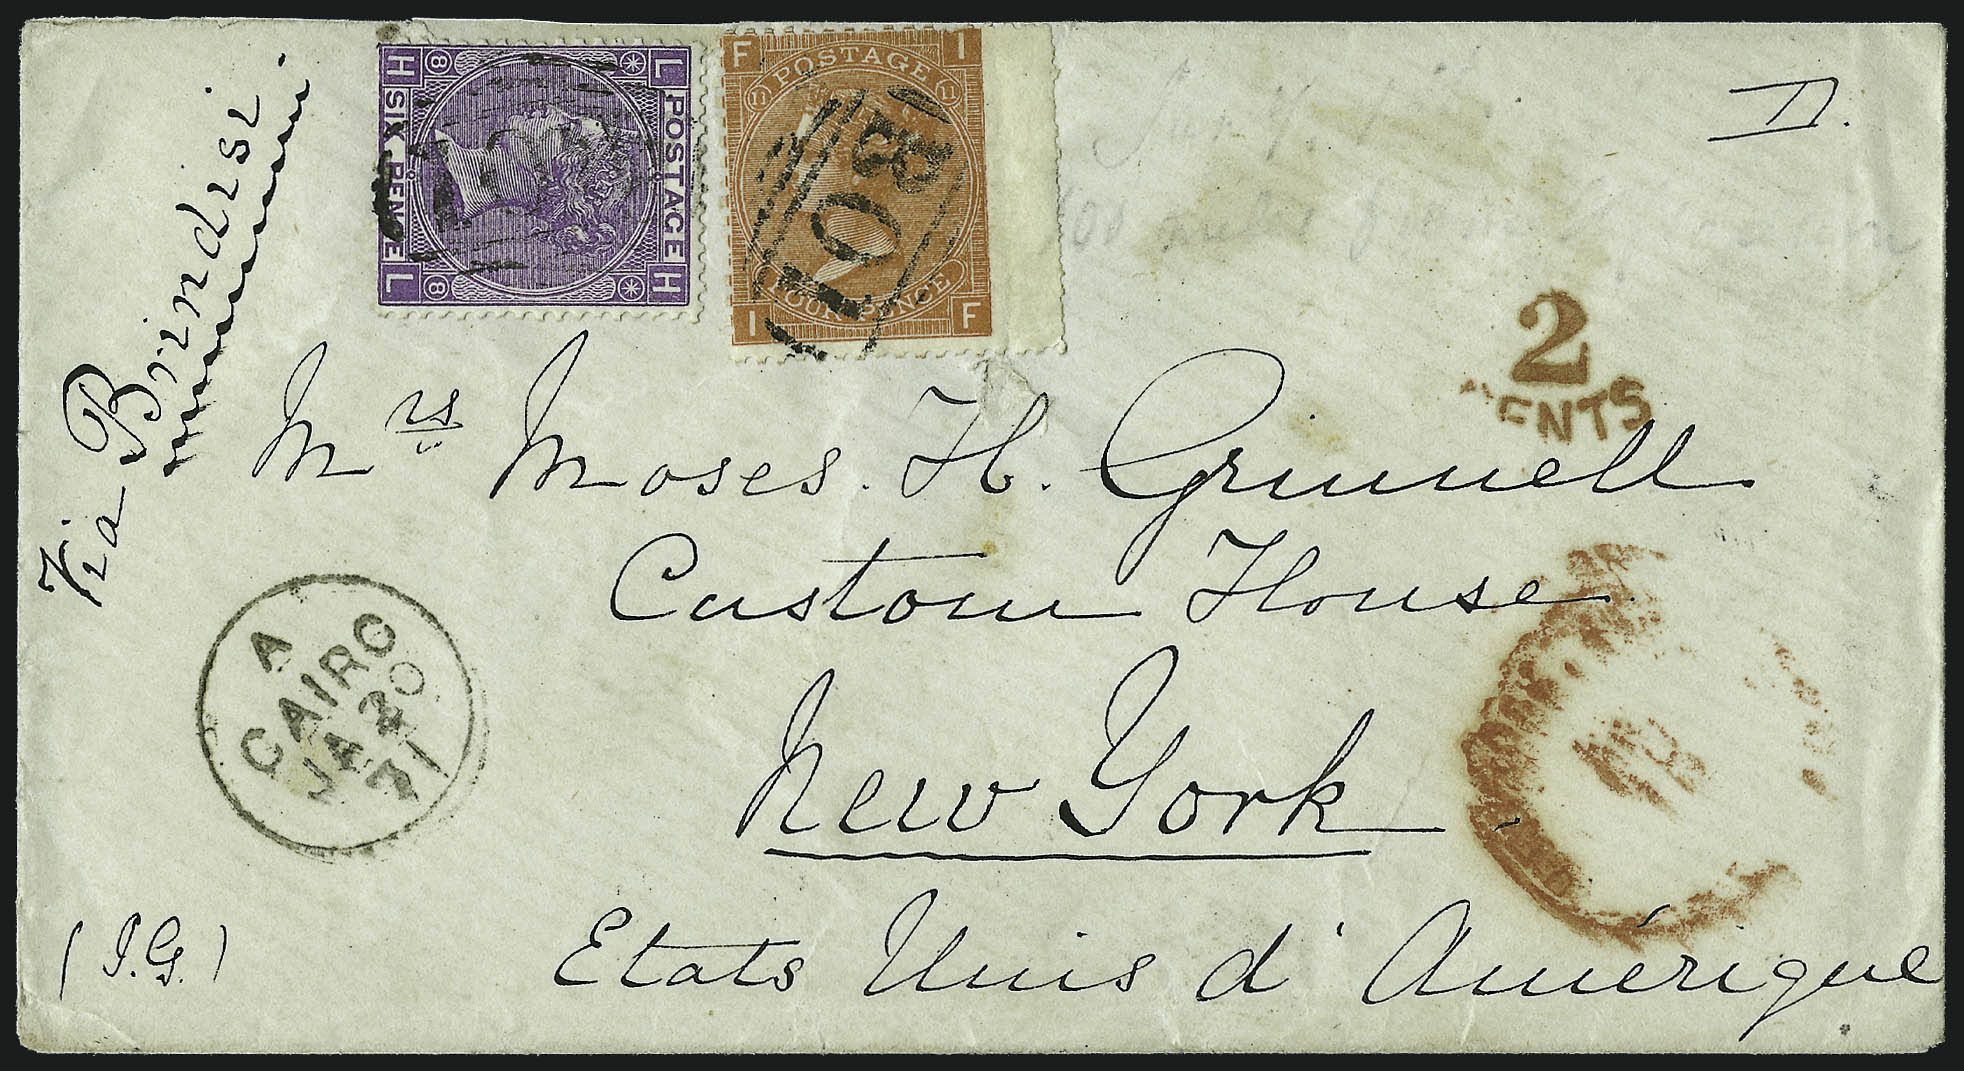 Via Brindisi
H L
8
SIX PENCE
POSTAGE
8
L H
F I
POSTAGE
11 11
FOUR PENCE
I F
B01
II.
2
CENTS
Mrs Moses. H. Grinnell
Custom House
New York
Etats Unis d'Amérique
A
CAIRO
JA 20
71
(I.G.)